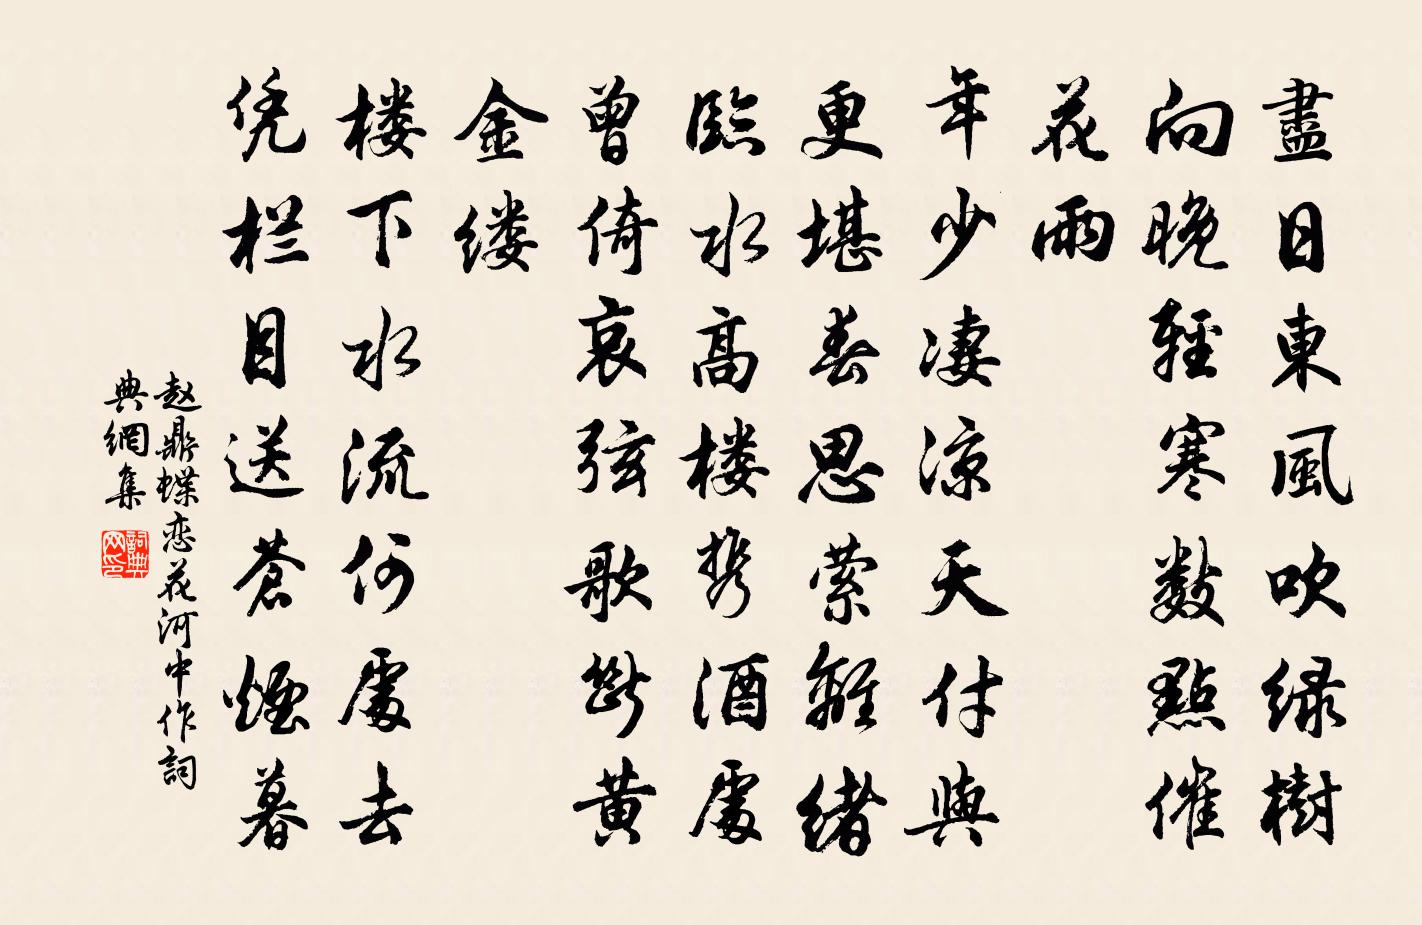 盡日東風吹緑樹
向晚輕寒数點催
花雨
年少淒涼天付與
更堪春思縈離緒
臨水高楼携酒處
曾倚哀弦歌斷黄
金缕
楼下水流何處去
凭栏目送蒼煙暮
赵鼎蝶恋花河中作詞
典網集
詞典网印